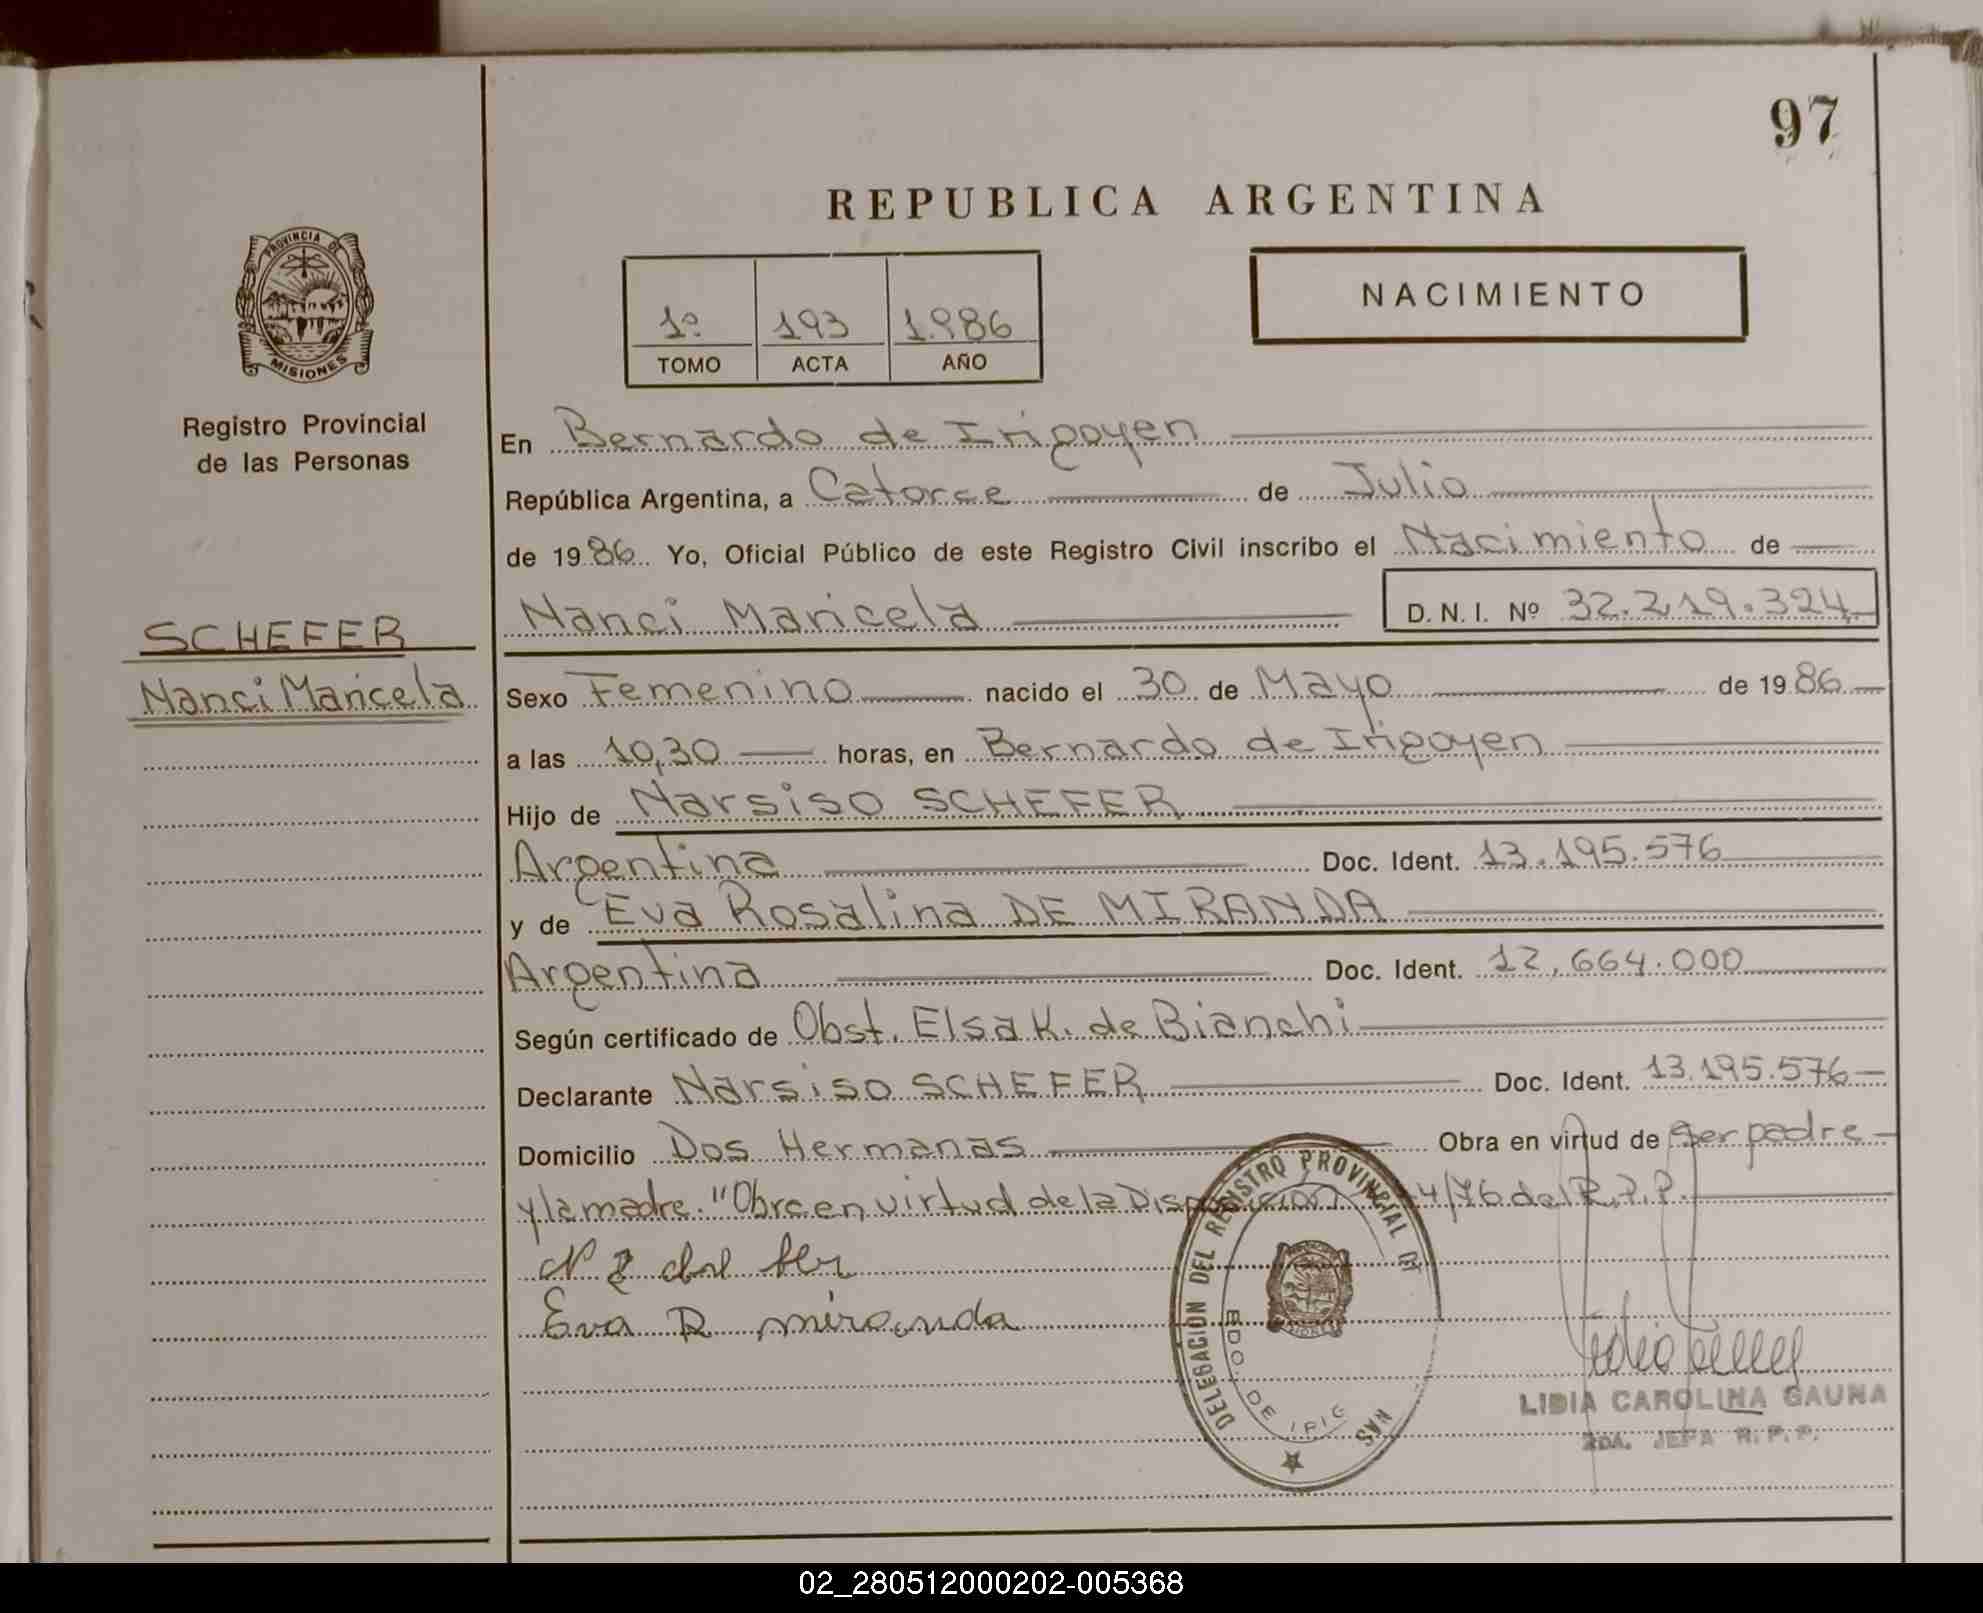 97
REPUBLICA ARGENTINA
PROVINCIA DE
MISIONES
Registro Provincial
de las Personas
1º 193 1.986
TOMO ACTA AÑO
NACIMIENTO
En Bernardo de Irigoyen
República Argentina, a Catorce de Julio
de 1986 Yo, Oficial Público de este Registro Civil inscribo el Nacimiento de
Nanci Maricela D. N. I. Nº 32.219.324
SCHEFER
Nanci Maricela
Sexo Femenino nacido el 30 de Mayo de 1986
a las 10,30 horas, en Bernardo de Irigoyen
Hijo de Narsiso SCHEFER
Argentina Doc. Ident. 13.195.576
y de Eva Rosalina DE MIRANDA
Argentina Doc. Ident. 12,664.000
Según certificado de Obst. Elsa K. de Bianchi
Declarante Narsiso SCHEFER Doc. Ident. 13.195.576
Domicilio Dos Hermanas Obra en virtud de Ser padre
y la madre. "Obra en virtud de la Disposicion 4/76 del R.P.P.
Eva R miranda
DELEGACION DEL REGISTRO PROVINCIAL DE
BDO. DE IRIG
LIDIA CAROLINA GAUNA
2DA. JEFA R.P.P.
02_280512000202-005368